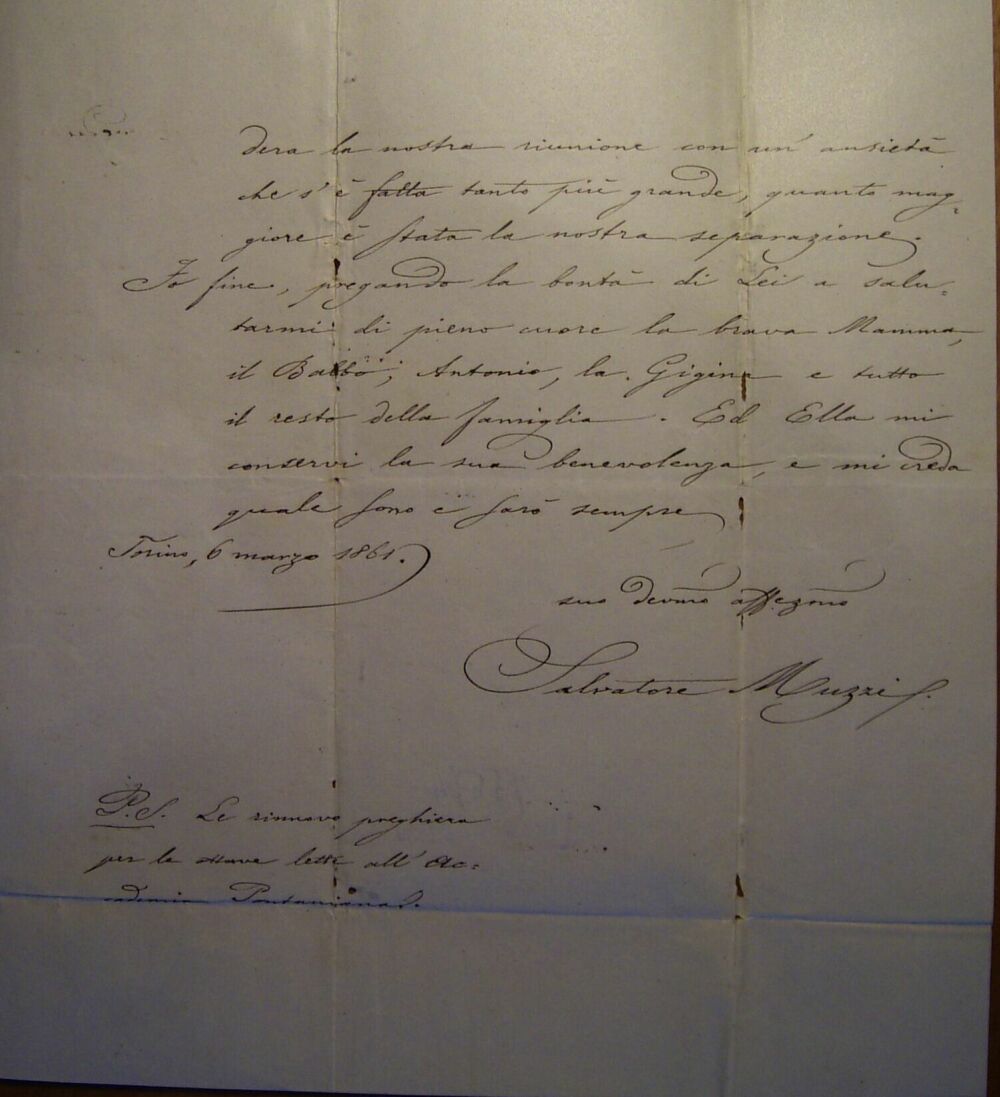 dera la nostra riunione con un' ansietà
che s'è fatta tanto più grande, quanto mag-
giore è stata la nostra separazione.
Fo fine, pregando la bontà di Lei a salu-
tarmi di pieno cuore la brava Mamma,
il Babbo, Antonio, la Gigina e tutto
il resto della famiglia. Ed Ella mi
conservi la sua benevolenza, e mi creda
quale sono e sarò sempre
Torino, 6 marzo 1861.
suo devmo affezmo
Salvatore Muzzi
P.S. Le rinnovo preghiera
per le lette all' Ac=
cademia Pontaniana.